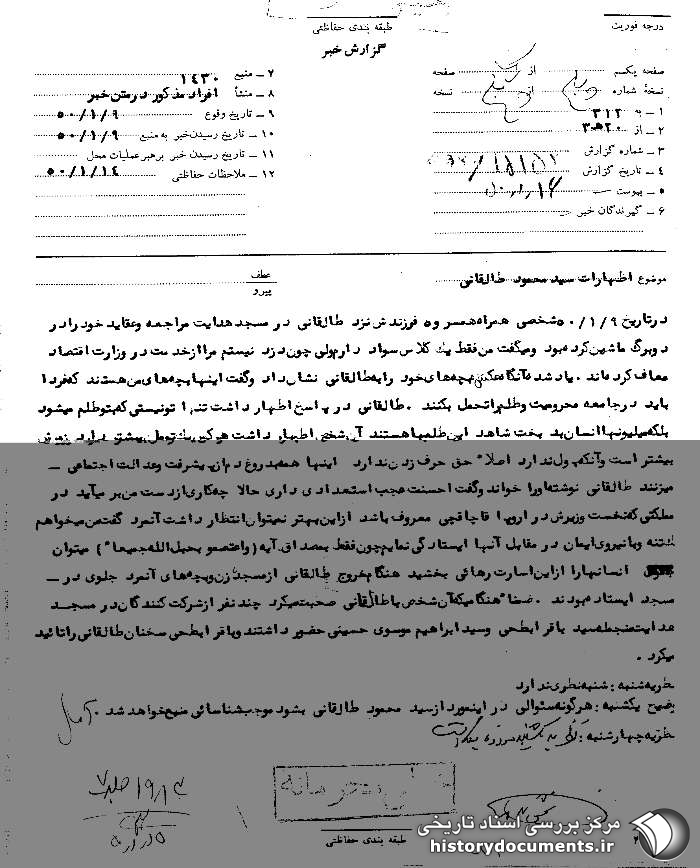 درجه فوریت
طبقه بندی حفاظتی
گزارش خبر
صفحه یکم از صفحه
نسخهٔ شماره از نسخه
۱ ـ به ۳۱۲
۲ ـ از
۳ ـ شماره گزارش
۴ ـ تاریخ گزارش
۵ ـ پیوست
۶ ـ گیرندگان خبر
۷ ـ منبع ۱۴۳۰
۸ ـ منشأ افراد مذکور در متن خبر
۹ ـ تاریخ وقوع ۵۰/۱/۹
۱۰ ـ تاریخ رسیدن خبر به منبع ۵۰/۱/۹
۱۱ ـ تاریخ رسیدن خبر برهبر عملیات محل
۱۲ ـ ملاحظات حفاظتی ۵۰/۱/۱۴
موضوع اظهارات سید محمود طالقانی
عطف
پیرو
در تاریخ ۵۰/۱/۹ شخصی همراه همسر و ۵ فرزندش نزد طالقانی در مسجد هدایت مراجعه و عقاید خود را در
دو برگ ماشین کرده بود و میگفت من فقط یک کلاس سواد دارم ولی چون دزد نیستم مرا از خدمت در وزارت اقتصاد
معاف کرده‌اند. یاد شده آنگاه عکس بچه‌های خود را به طالقانی نشان داد و گفت اینها بچه‌های من هستند که فردا
باید در جامعه محرومیت و ظلم را تحمل بکنند. طالقانی در پاسخ اظهار داشت تنها تو نیستی که بتو ظلم میشود
بلکه میلیونها انسان بدبخت شاهد این ظلمها هستند آن شخص اظهار داشت هر کس پول بیشتر دارد زورش
بیشتر است و آنکه پول ندارد اصلاً حق حرف زدن ندارد اینها همه بدروغ دم از پیشرفت و عدالت اجتماعی ـ
میزنند طالقانی نوشته او را خواند و گفت احسنت عجب استعدادی داری حالا چه کاری از دست من بر میآید در
مملکتی که نخست وزیرش در اروپا قاچاقچی معروف باشد از این بهتر نمیتوان انتظار داشت آنمرد گفت من میخواهم
و با نیروی ایمان در مقابل آنها ایستادگی نمایم چون فقط بمصداق آیه (واعتصمو بحبل الله جمیعا) میتوان
انسانها را از این اسارت رهائی بخشید هنگام خروج طالقانی از مسجد زن و بچه‌های آنمرد جلوی در ـ
مسجد ایستاده بودند. ضمناً هنگامیکه آن شخص با طالقانی صحبت میکرد چند نفر از شرکت کنندگان در مسجد
هدایت منجمله سید باقر ابطحی و سید ابراهیم موسوی حسینی حضور داشتند و باقر ابطحی سخنان طالقانی را تائید
میکرد.
نظریه شنبه: شنبه نظری ندارد
توضیح یکشنبه: هرگونه سئوالی در اینمورد از سید محمود طالقانی بشود موجب شناسائی منبع خواهد شد.
نظریه چهارشنبه:
خیلی محرمانه
طبقه بندی حفاظتی
مرکز بررسی اسناد تاریخی
historydocuments.ir